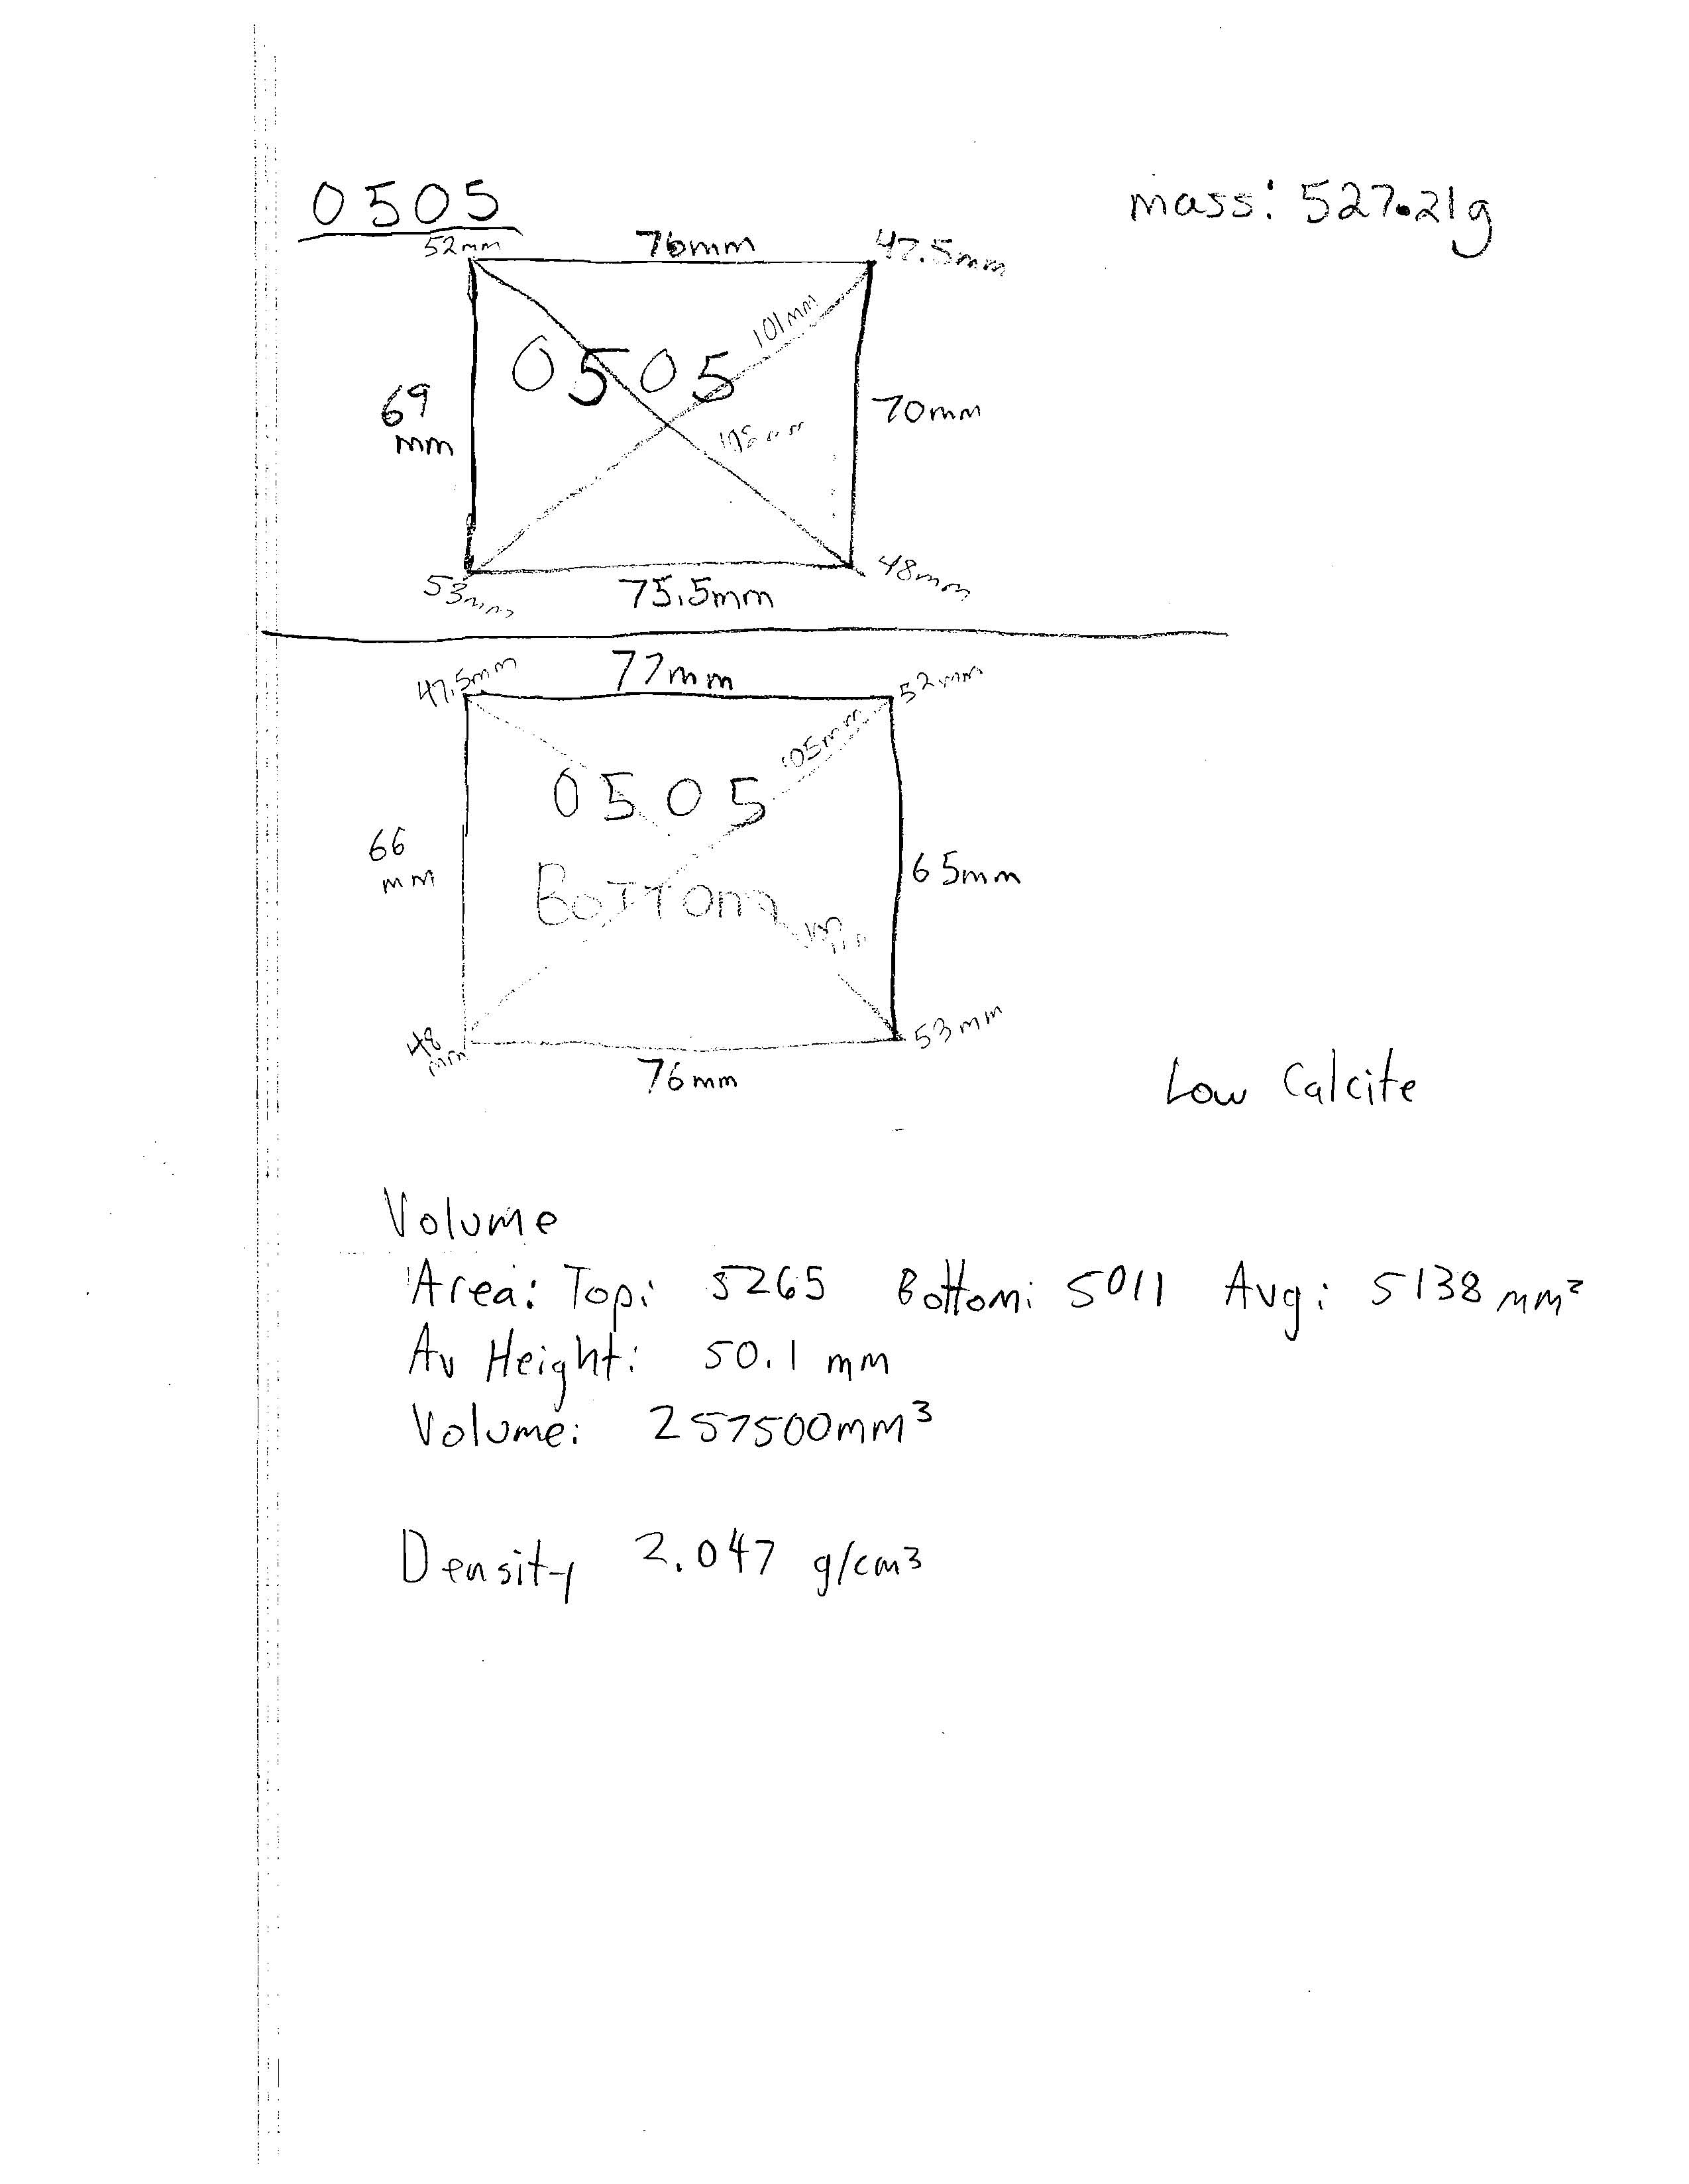 0505
mass: 527.21g
52mm 76mm 47.5mm
101mm
0505
69 mm
70mm
53mm 75.5mm 48mm
47.5mm 77mm 52mm
105mm
0505
66 mm
65mm
BOTTOM
48 mm
53mm
76mm
Low Calcite
Volume
Area: Top: 5265 Bottom: 5011 Avg: 5138 mm²
Av Height: 50.1 mm
Volume: 257500mm³
Density 2.047 g/cm³